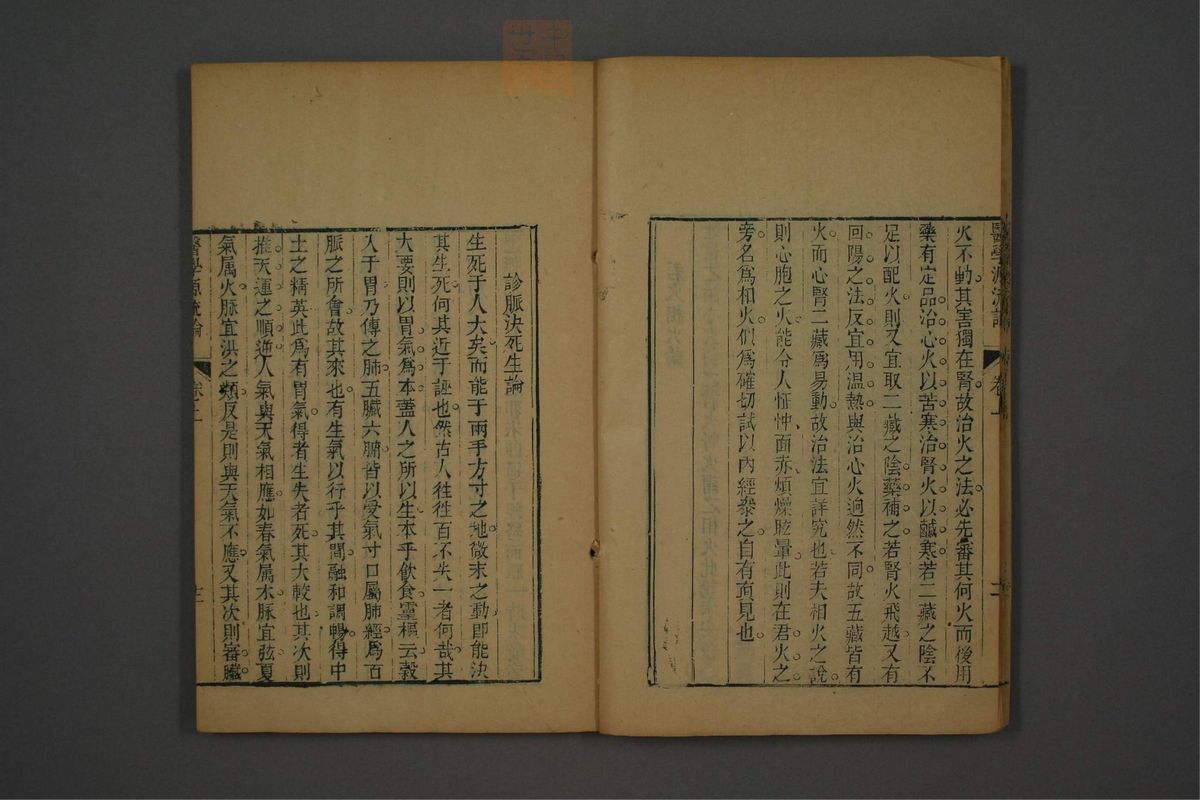 醫學源流論 卷上
火不動其害獨在腎故治火之法必先審其何火而後用
藥有定品治心火以苦寒治腎火以鹹寒若二藏之陰不
足以配火則又宜取二藏之陰藥補之若腎火飛越又有
回陽之法反宜用温熱與治心火迥然不同故五藏皆有
火而心腎二藏爲易動故治法宜詳究也若夫相火之說
則心胞之火能令人怔忡面赤煩燥眩暈此則在君火之
旁名爲相火似爲確切試以內經參之自有真見也
診脈決死生論
生死于人大矣而能于兩手方寸之地微末之動卽能決
其生死何其近于誣也然古人往往百不失一者何哉其
大要則以胃氣爲本蓋人之所以生本乎飲食靈樞云穀
入于胃乃傳之肺五臟六腑皆以受氣寸口屬肺經爲百
脈之所會故其來也有生氣以行乎其間融和調暢得中
土之精英此爲有胃氣得者生失者死其大較也其次則
推天運之順逆人氣與天氣相應如春氣属木脈宜弦夏
氣属火脈宜洪之類反是則與天氣不應又其次則審臟
醫學源流論 卷上